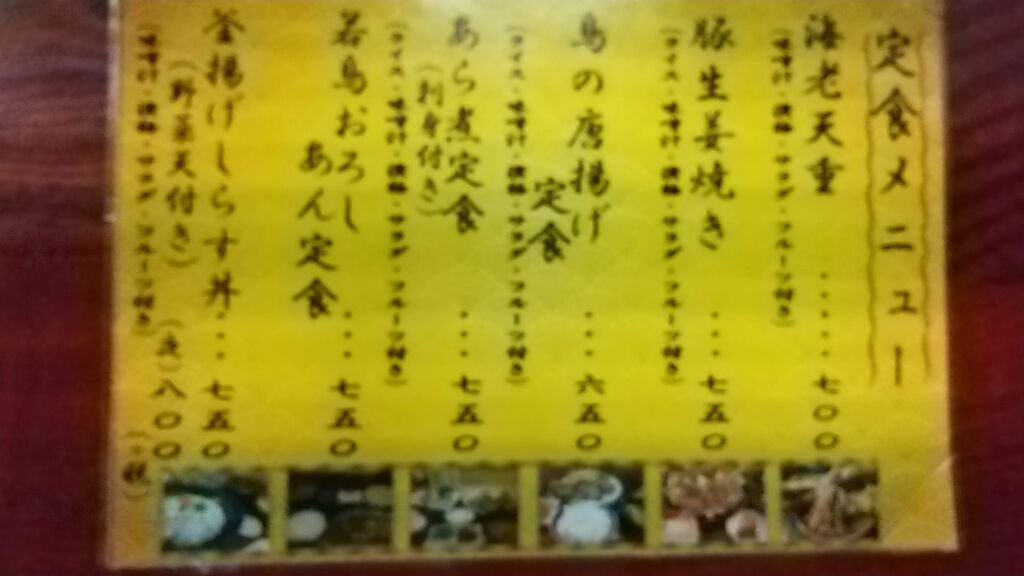 定食メニュー
海老天重……七〇〇
(味噌汁・漬物・サラダ・フルーツ付き)
豚生姜焼き…七五〇
(ライス・味噌汁・漬物・サラダ・フルーツ付き)
鳥の唐揚げ
定食…六五〇
(ライス・味噌汁・漬物・サラダ・フルーツ付き)
あら煮定食…七五〇
(刺身付き)
(ライス・味噌汁・漬物・サラダ・フルーツ付き)
若鳥おろし
あん定食…七五〇
釜揚げしらす丼…七五〇
(野菜天付き)
八〇〇
(味噌汁・漬物・サラダ・フルーツ付き)